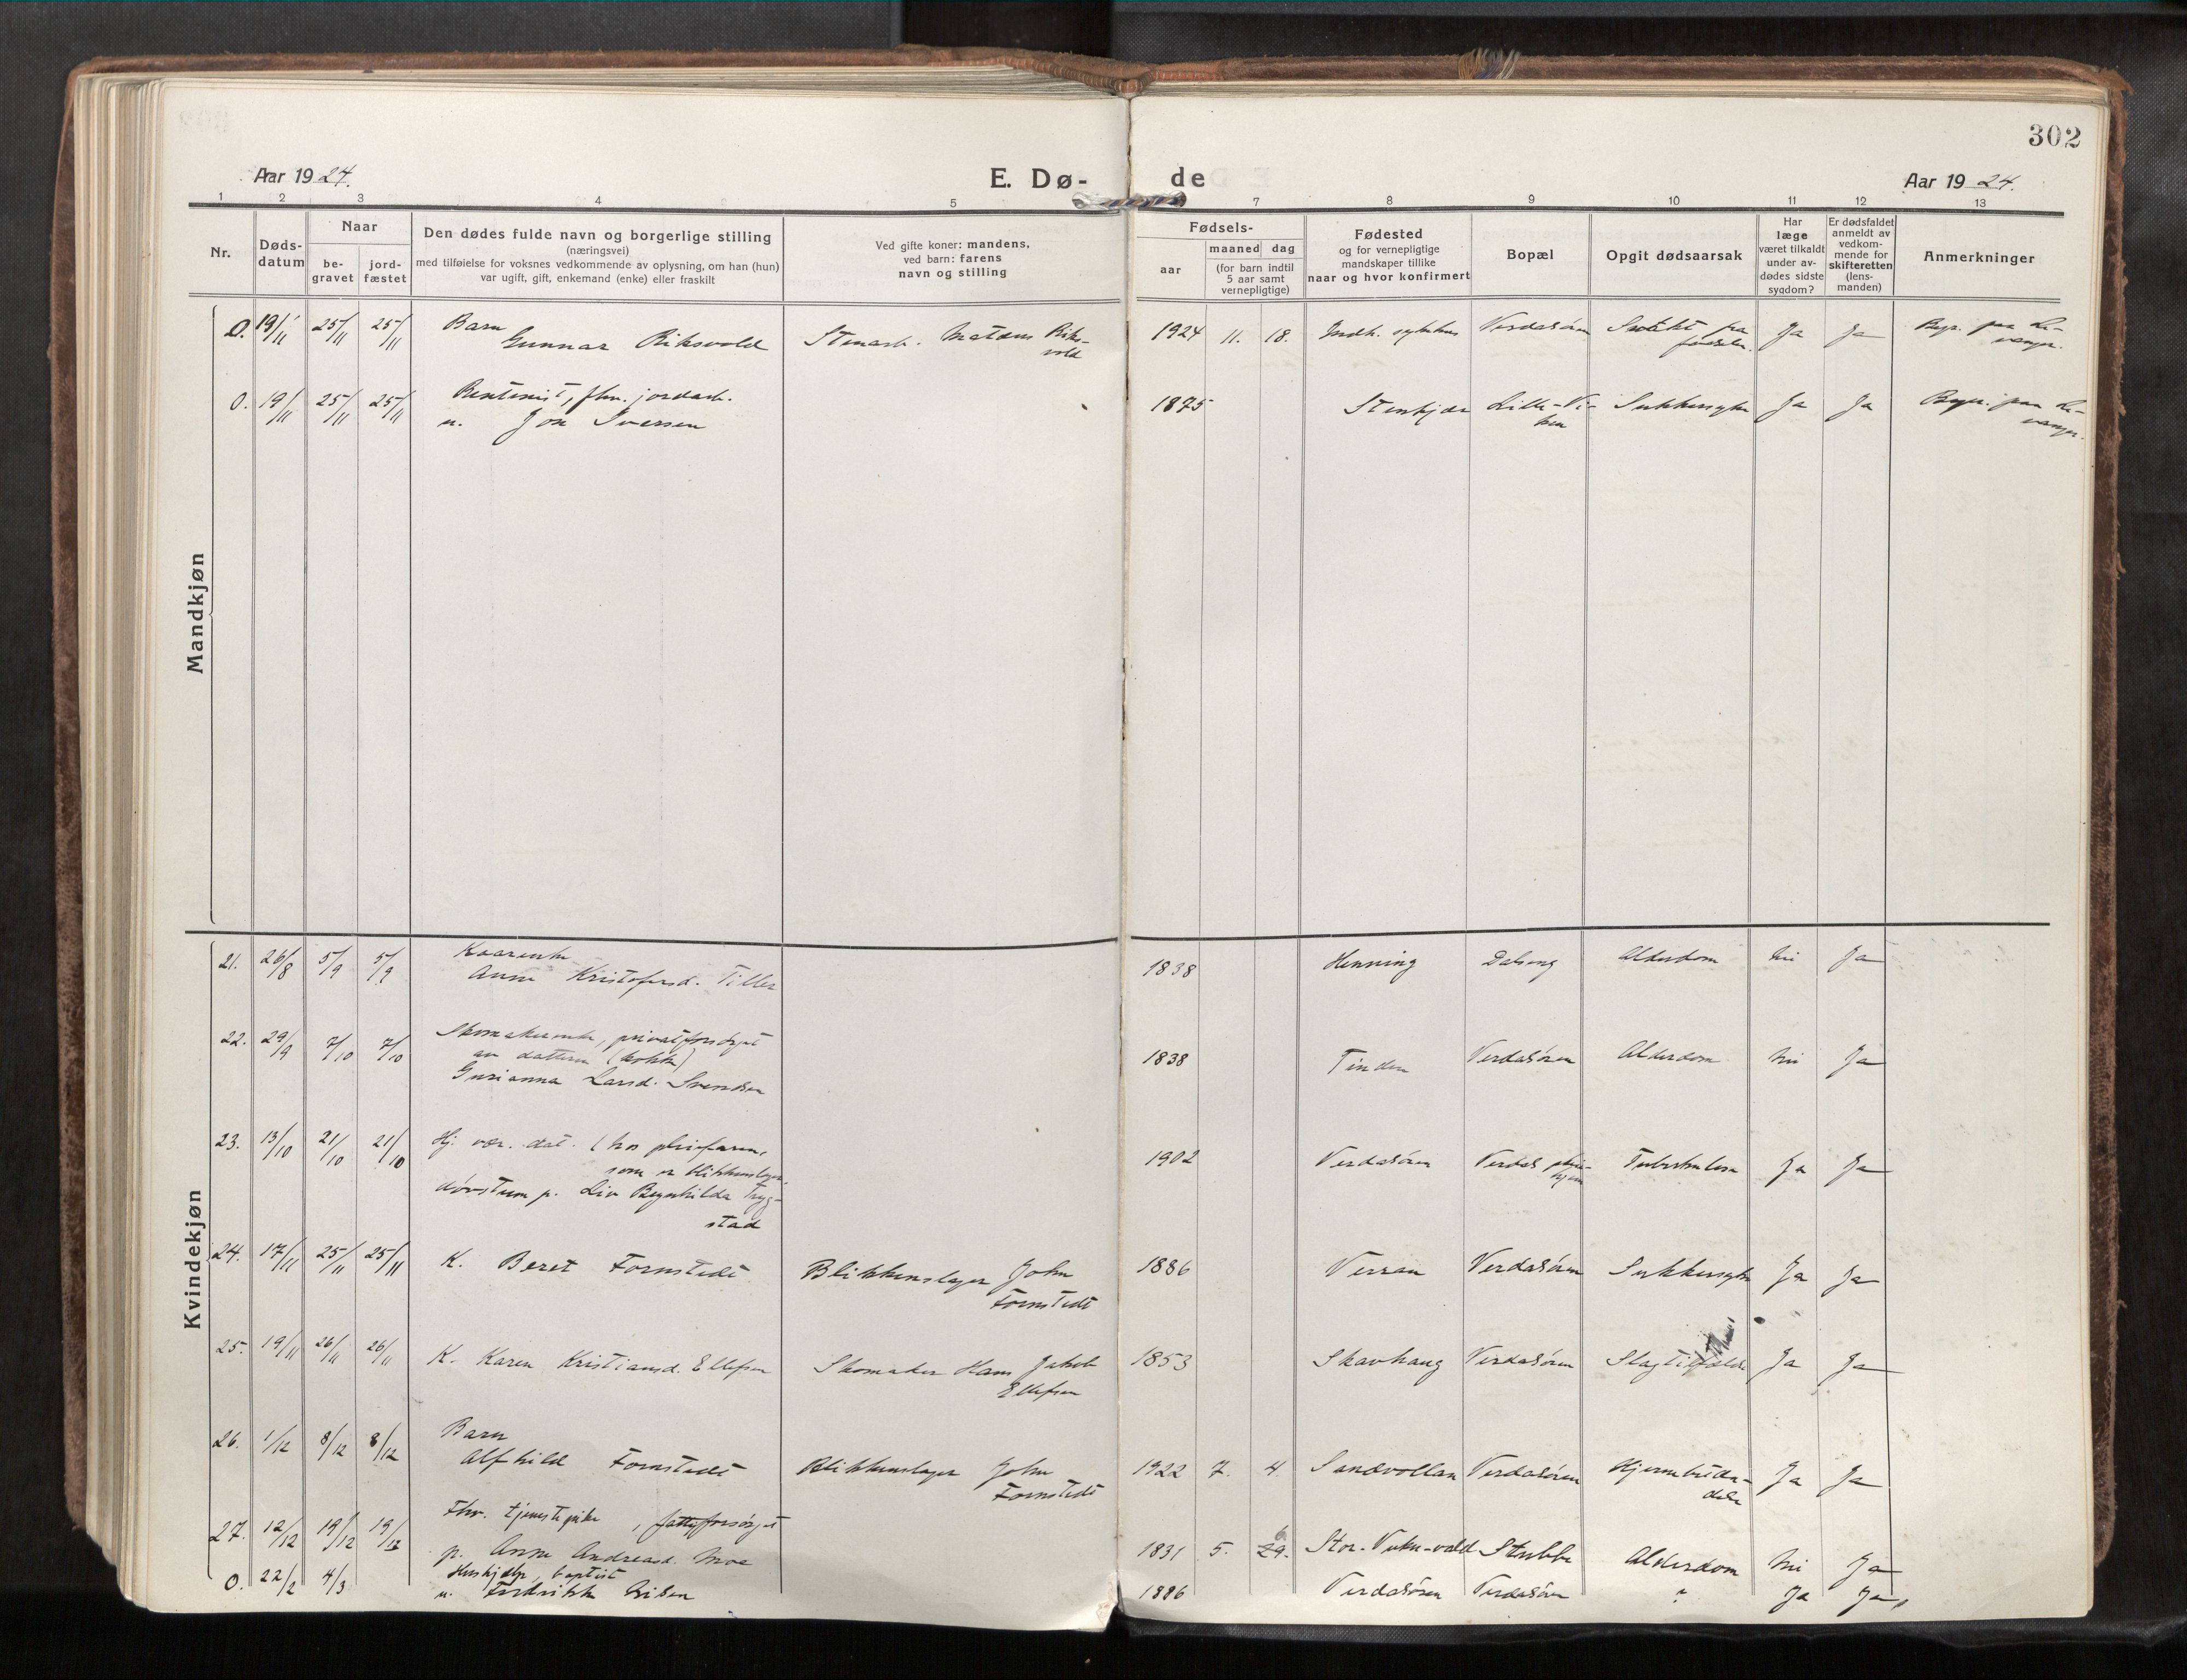 302
Aar 1924.
E. Dø-
de
Aar 1924.
1 2 3 4 5 7 8 9 10 11 12 13
Nr.
Døds-
datum
Naar
be-
gravet
jord-
fæstet
Den dødes fulde navn og borgerlige stilling
(næringsvei)
med tilføielse for voksnes vedkommende av oplysning, om han (hun)
var ugift, gift, enkemand (enke) eller fraskilt
Ved gifte koner: mandens,
ved barn: farens
navn og stilling
Fødsels-
aar
maaned
dag
(for barn indtil
5 aar samt
vernepligtige)
Fødested
og for vernepligtige
mandskaper tillike
naar og hvor konfirmert
Bopæl
Opgit dødsaarsak
Har
læge
været tilkaldt
under av-
dødes sidste
sygdom?
Er dødsfaldet
anmeldt av
vedkom-
mende for
skifteretten
(lens-
manden)
Anmerkninger
Mandkjøn
0. 19/11 25/11 25/11 Barn
Gunnar Riksvold
Stenarb. Riks-
vold
1924 11. 18. Indh. sykehus Verdalsøren
fra
fødselen. Ja Ja
Begr. paa Le-
vanger.
0. 19/11 25/11 25/11 Rentenist, fhv. jordarb.
u. Jon Iversen
1875 Stenkjær Lille-Vi-
ken Sukkersyke Ja Ja
Begr. paa Le-
vanger.
Kvindekjøn
21. 26/8 5/9 5/9 Kaarenke
Anne Kristofersd. Tiller
1838 Henning Alderdom Nei Ja
22. 29/9 7/10 7/10 Skomakerenke, privatforsørget
av datteren (kokke)
Gurianna Larsd. Svendsen
1838 Tinden Verdalsøren Alderdom Nei Ja
23. 13/10 21/10 21/10 Hj. vær. dat. (hos pleiefaren,
som er blikkenslager.
døvstum p. Liv Bergnhilda Tryg-
stad
1902 Verdalsøren Verdals pleie-
hjem Tuberkulose Ja Ja
24. 17/11 25/11 25/11 K. Beret Fornstedt
Blikkenslager John
Fornstedt
1886 Verran Verdalsøren Sukkersyke Ja Ja
25. 19/11 26/11 26/11 K. Karen Kristiansd. Ellefsen
Skomaker Hans Jakob
Ellefsen
1853 Skavhaug Verdalsøren Slagtilfælde Ja Ja
26. 1/12 8/12 8/12 Barn
Alfhild Fornstedt
Blikkenslager John
Fornstedt
1922 7. 4. Sandvollan Verdalsøren Ja Ja
27. 12/12 19/12 19/12 Fhv. tjenestepike, fattigforsørget
p. Anne Andreasd. Moe
1831 5. 29. Stor-Vuku-vald Stubbe Alderdom Nei Ja
0. 22/2 4/3 Hushjælp, baptist
u. Fredrikke
1886 Verdalsøren Verdalsøren " Ja Ja